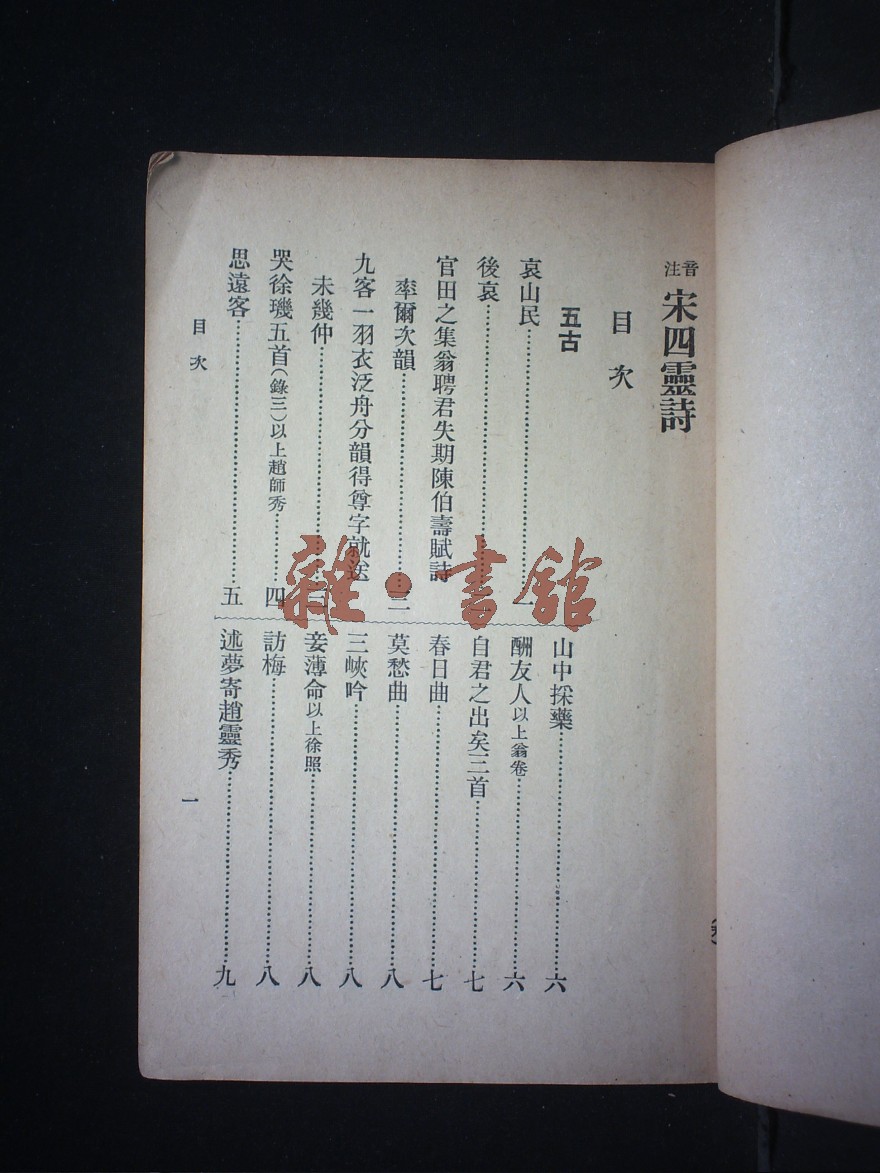 音注 宋四靈詩
目次
五古
哀山民……一
後哀……
官田之集翁聘君失期陳伯壽賦詩
率爾次韻……三
九客一羽衣泛舟分韻得尊字就送
未幾仲……三
哭徐璣五首(錄三)以上趙師秀……四
思遠客……五
山中採藥……六
酬友人以上翁卷……六
自君之出矣三首……七
春日曲……七
莫愁曲……八
三峽吟……八
妾薄命以上徐照……八
訪梅……八
述夢寄趙靈秀……九
目次
一
雜·書館